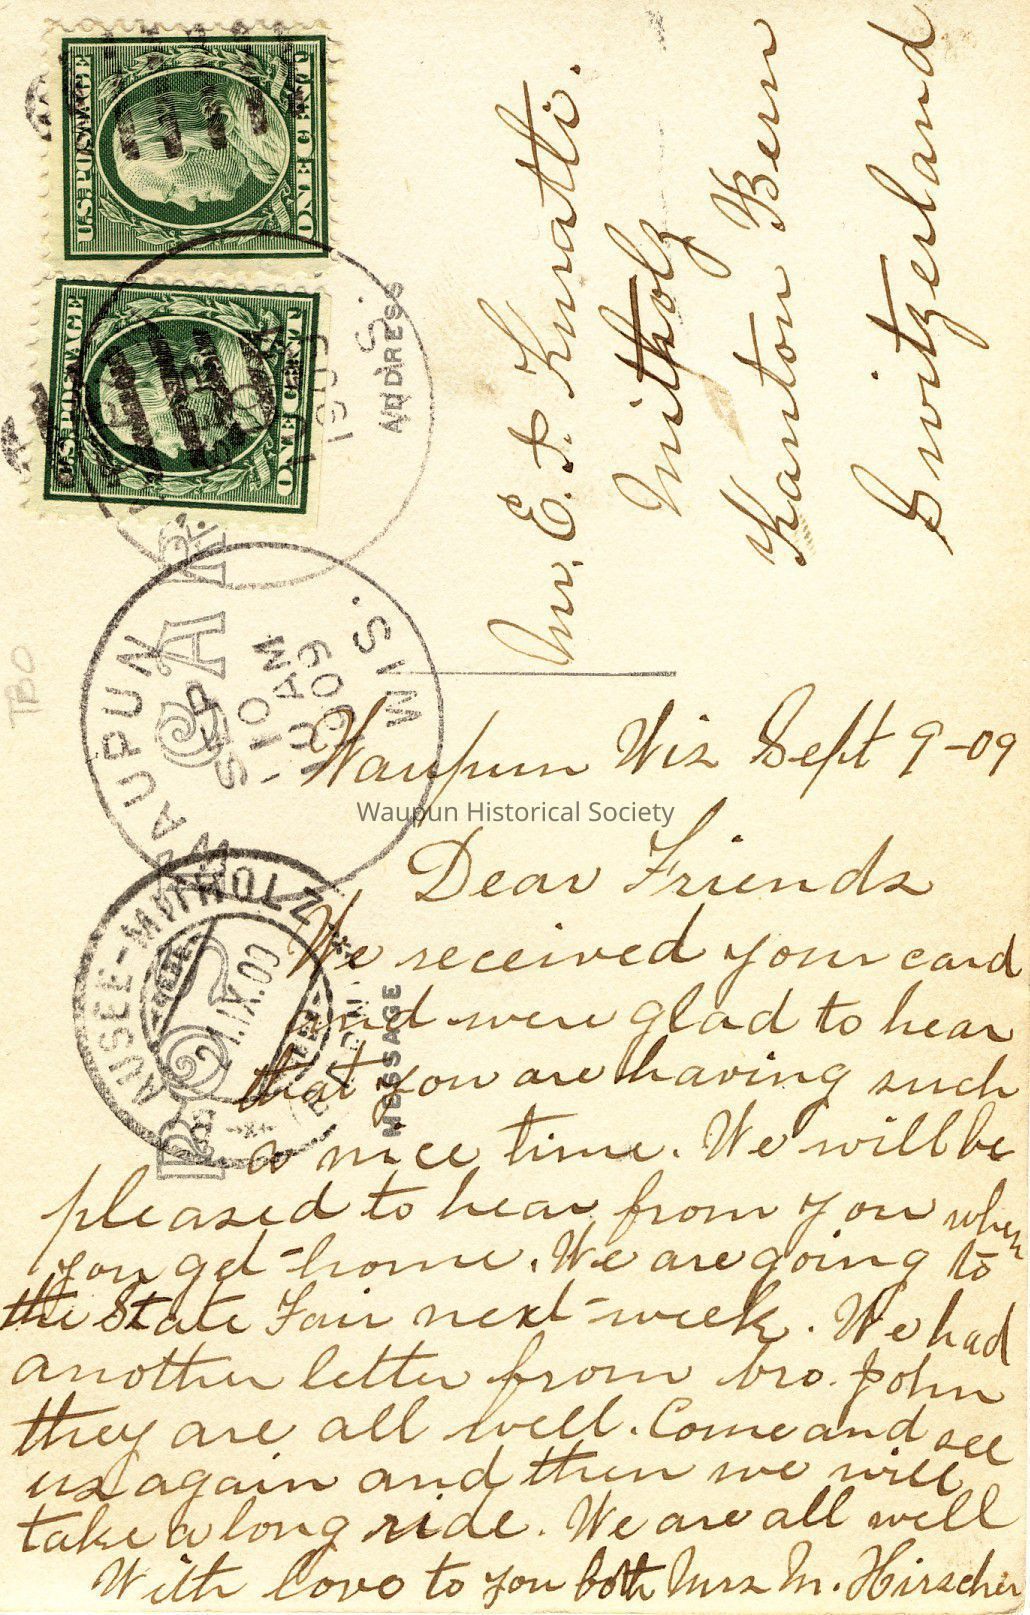 U.S. POSTAGE
ONE CENT
U.S. POSTAGE
ONE CENT
ADDRESS
Mr. E. P. Knatti.
Mitholz
Kanton Bern
Switzerland
WAUPUN WIS.
SEP
10
11 AM
1909
TBO
Waupun Wis Sept 9-09
Waupun Historical Society
Dear Friends
We received your card
and were glad to hear
that you are having such
a nice time. We will be
pleased to hear from you when
you get home. We are going to
the State Fair next week. We had
another letter from bro. John
they are all well. Come and see
us again and then we will
take a long ride. We are all well
With love to you both Mrs M. Hirscher
MESSAGE
AUSEE-MITHOLZ
21.IX.09